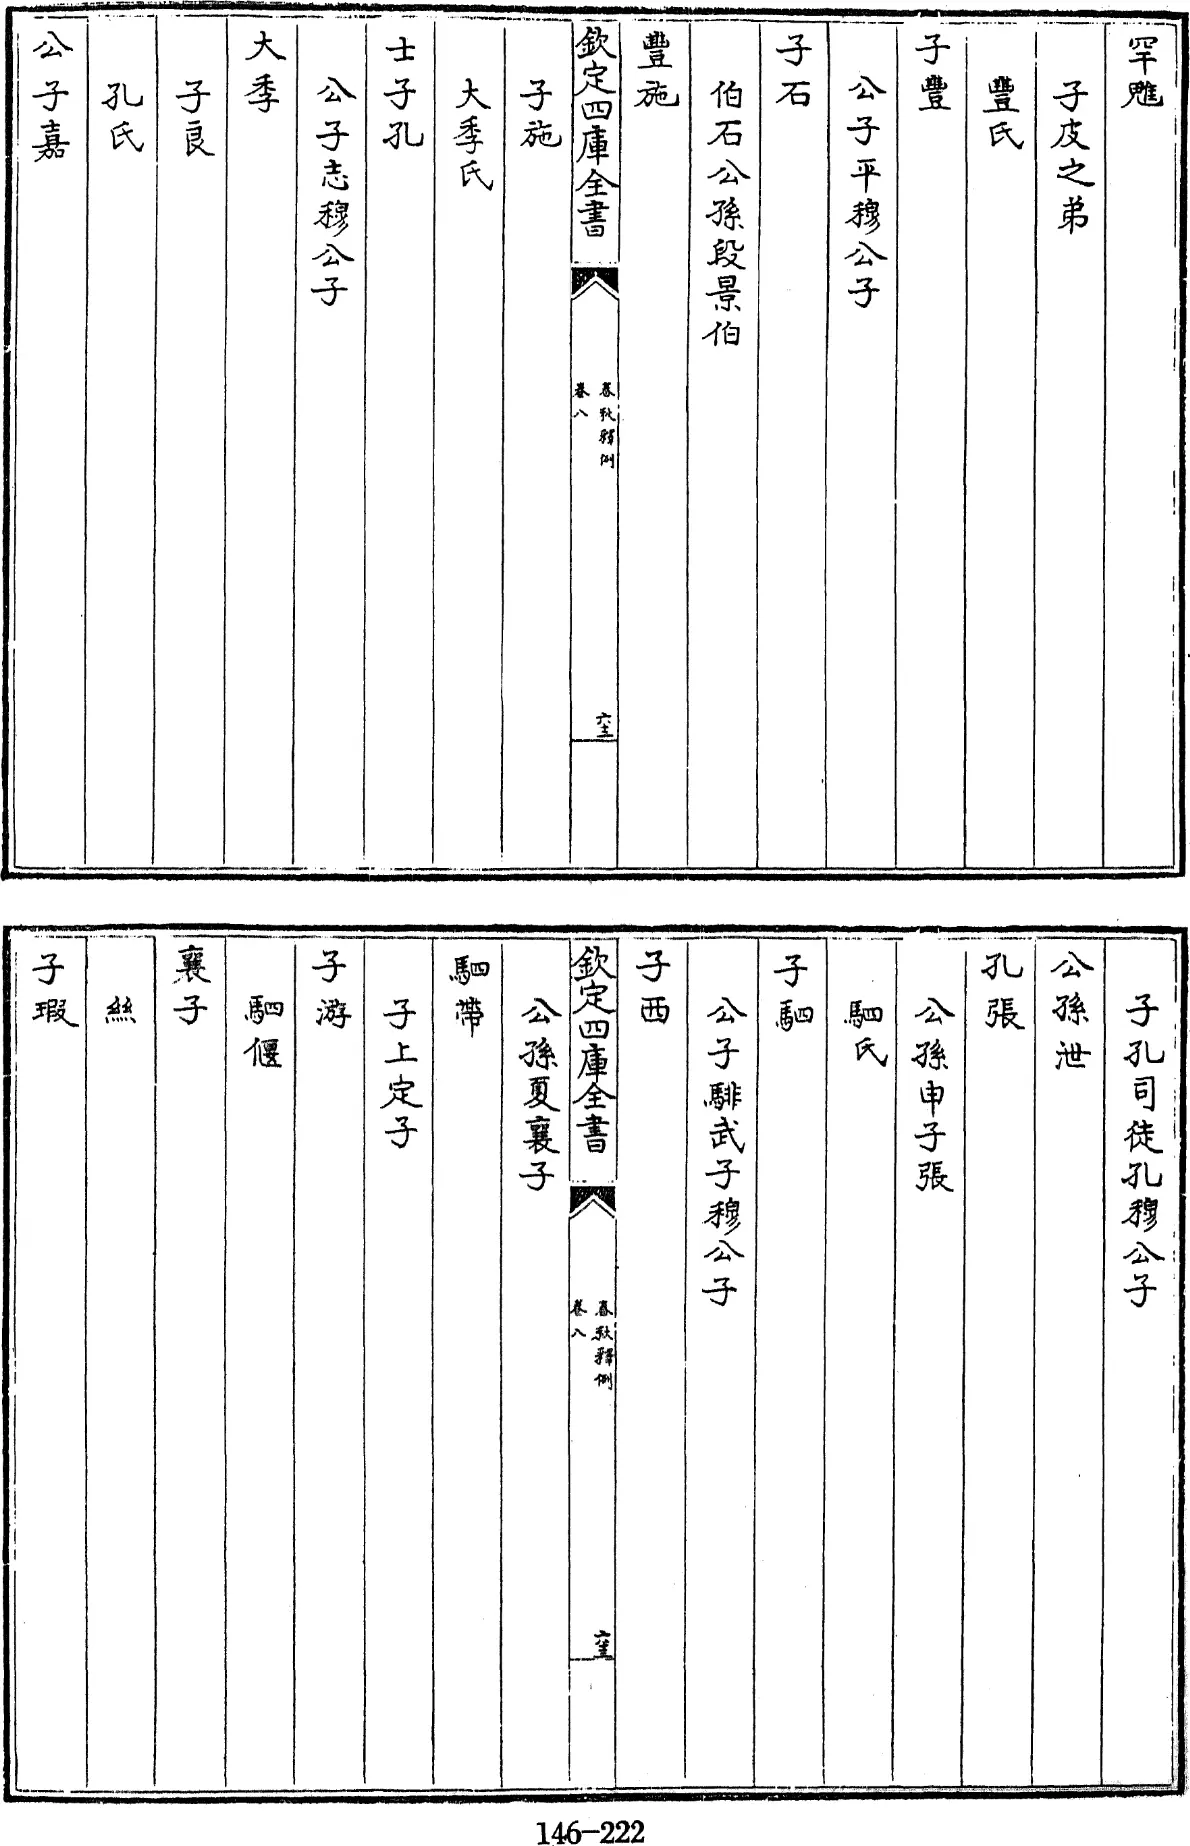 罕魋
子皮之弟
豐氏
子豐
公子平穆公子
子石
伯石公孫段景伯
豐施
欽定四庫全書
春秋釋例
卷八
六十二
子施
大季氏
士子孔
公子志穆公子
大季
子良
孔氏
公子嘉
子孔司徒孔穆公子
公孫泄
孔張
公孫申子張
駟氏
子駟
公子騑武子穆公子
子西
欽定四庫全書
春秋釋例
卷八
六十三
公孫夏襄子
駟帶
子上定子
子游
駟偃
襄子
絲
子瑕
146-222